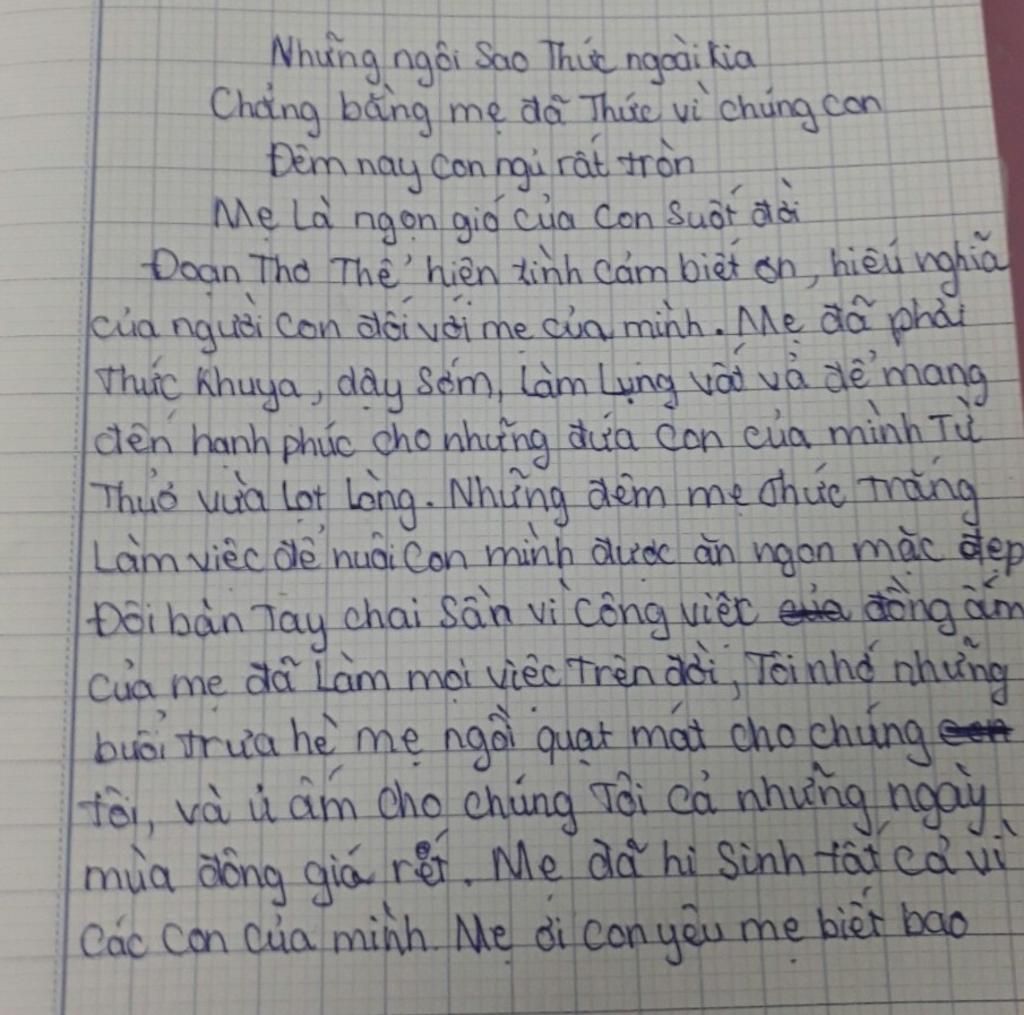 Những ngôi sao Thức ngoài kia
Chẳng bằng mẹ đã Thức vì chúng con
Đêm nay con ngủ rất tròn
Mẹ Là ngọn gió của con suốt đời
Đoạn Thơ Thể hiện tình cảm biết ơn, hiếu nghĩa
của người con đối với mẹ của mình. Mẹ đã phải
Thức khuya, dậy sớm, Làm Lụng vất vả để mang
đến hạnh phúc cho những đứa con của mình Từ
Thuở vừa lọt Lòng. Những đêm mẹ thức trắng
Làm việc để nuôi con mình được ăn ngon mặc đẹp
Đôi bàn Tay chai sần vì công việc đồng ấm
của mẹ đã Làm mọi việc Trên đời, Tôi nhớ những
buổi trưa hè mẹ ngồi quạt mát cho chúng
tôi, và ủ ấm cho chúng Tôi cả những ngày
mùa đông giá rét. Mẹ đã hi sinh tất cả vì
các con của mình. Mẹ ơi con yêu mẹ biết bao